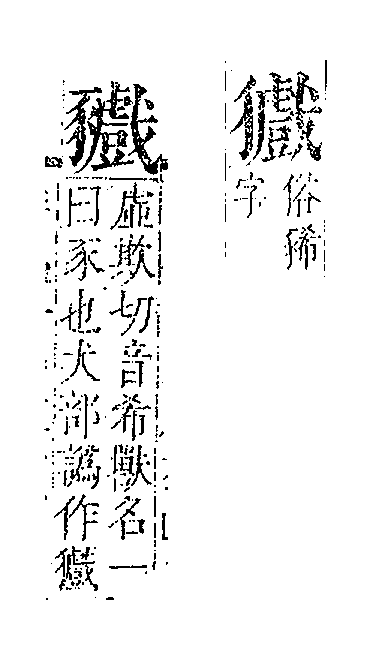 俗狶
字
虛欺切音希獸名一
曰豕也犬部譌作